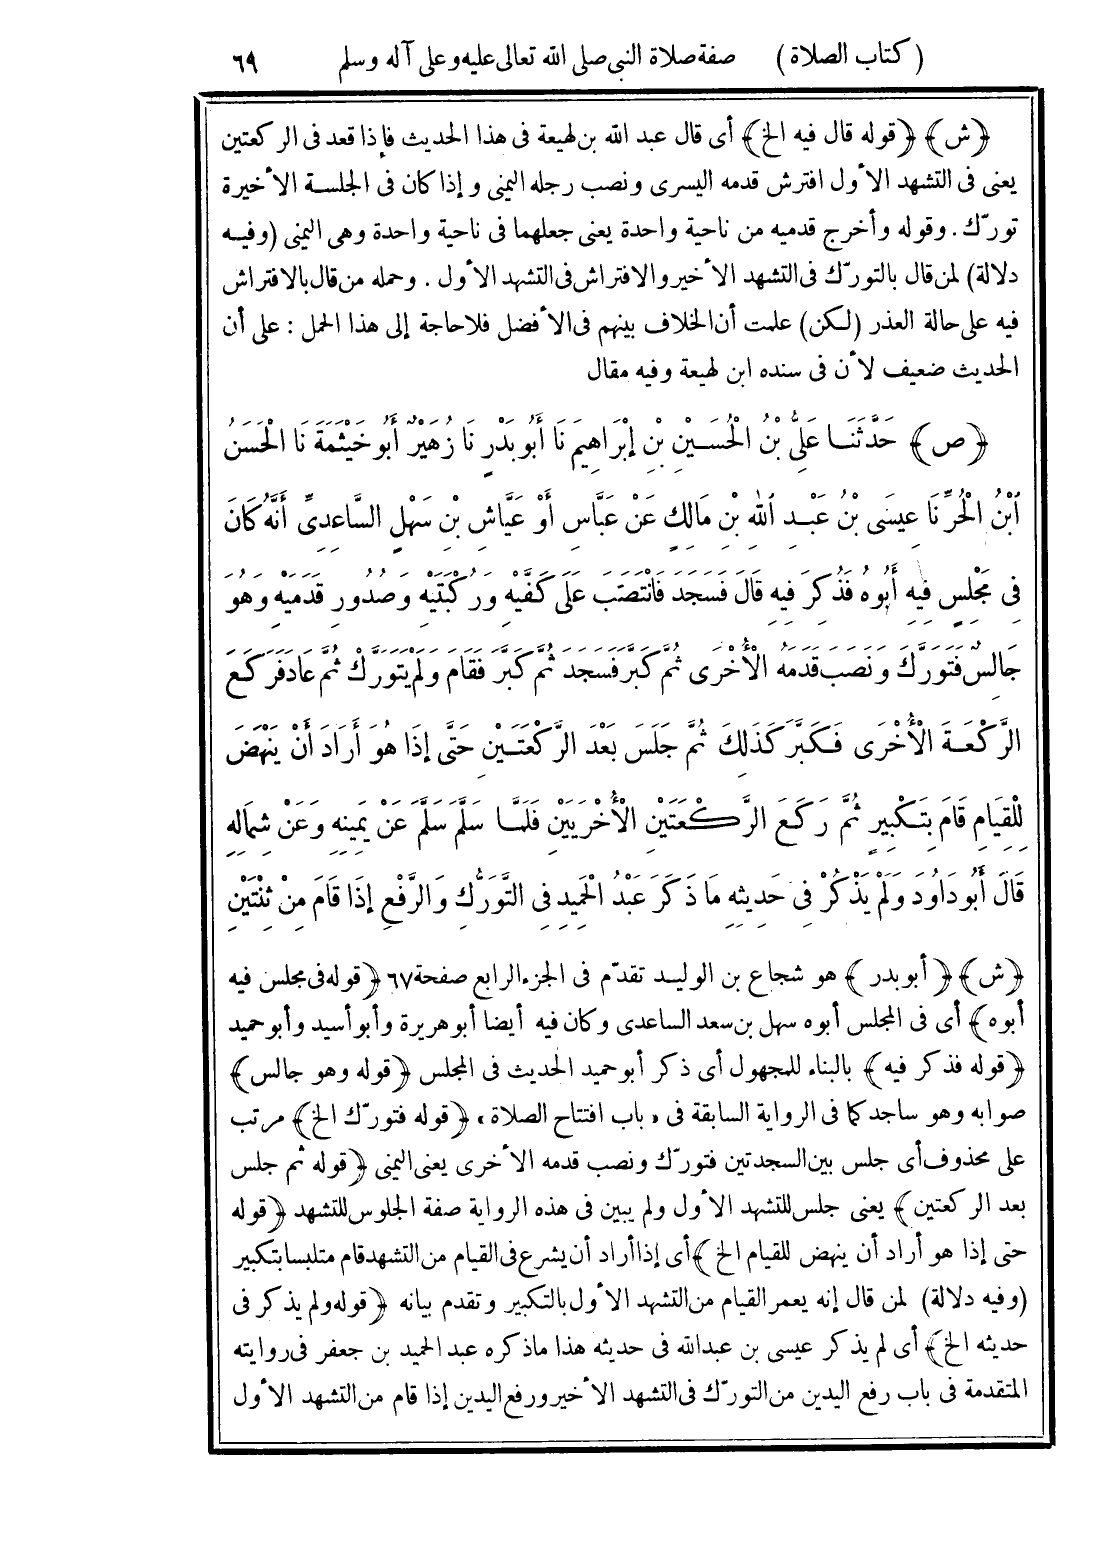 ( كتاب الصلاة ) صفة صلاة النبى صلى الله تعالى عليه وعلى آله وسلم ٦٩
﴿ش﴾ ﴿قوله قال فيه الخ﴾ أى قال عبد الله بن لهيعة فى هذا الحديث فإذا قعد فى الركعتين
يعنى فى التشهد الأول افترش قدمه اليسرى ونصب رجله اليمنى وإذا كان فى الجلسة الأخيرة
تورّك . وقوله وأخرج قدميه من ناحية واحدة يعنى جعلهما فى ناحية واحدة وهى اليمنى (وفيه
دلالة) لمن قال بالتورّك فى التشهد الأخير والافتراش فى التشهد الأول . وحمله من قال بالافتراش
فيه على حالة العذر (لكن) علمت أن الخلاف بينهم فى الأفضل فلا حاجة إلى هذا الحمل : على أن
الحديث ضعيف لأن فى سنده ابن لهيعة وفيه مقال
﴿ص﴾ حَدَّثَنَا عَلِىُّ بْنُ الْحُسَيْنِ بْنِ إِبْرَاهِيمَ نَا أَبُو بَدْرٍ نَا زُهَيْرٌ أَبُو خَيْثَمَةَ نَا الْحَسَنُ
ابْنُ الْحُرِّ نَا عِيسَى بْنُ عَبْدِ اللهِ بْنِ مَالِكٍ عَنْ عَبَّاسٍ أَوْ عَيَّاشِ بْنِ سَهْلٍ السَّاعِدِىِّ أَنَّهُ كَانَ
فِى مَجْلِسٍ فِيهِ أَبُوهُ فَذُكِرَ فِيهِ قَالَ فَسَجَدَ فَانْتَصَبَ عَلَى كَفَّيْهِ وَرُكْبَتَيْهِ وَصُدُورِ قَدَمَيْهِ وَهُوَ
جَالِسٌ فَتَوَرَّكَ وَنَصَبَ قَدَمَهُ الْأُخْرَى ثُمَّ كَبَّرَ فَسَجَدَ ثُمَّ كَبَّرَ فَقَامَ وَلَمْ يَتَوَرَّكْ ثُمَّ عَادَ فَرَكَعَ
الرَّكْعَةَ الْأُخْرَى فَكَبَّرَ كَذَلِكَ ثُمَّ جَلَسَ بَعْدَ الرَّكْعَتَيْنِ حَتَّى إِذَا هُوَ أَرَادَ أَنْ يَنْهَضَ
لِلْقِيَامِ قَامَ بِتَكْبِيرٍ ثُمَّ رَكَعَ الرَّكْعَتَيْنِ الْأُخْرَيَيْنِ فَلَمَّا سَلَّمَ سَلَّمَ عَنْ يَمِينِهِ وَعَنْ شِمَالِهِ
قَالَ أَبُو دَاوُدَ وَلَمْ يَذْكُرْ فِى حَدِيثِهِ مَا ذَكَرَ عَبْدُ الْحَمِيدِ فِى التَّوَرُّكِ وَالرَّفْعِ إِذَا قَامَ مِنْ ثِنْتَيْنِ
﴿ش﴾ ﴿أبو بدر﴾ هو شجاع بن الوليد تقدّم فى الجزء الرابع صفحة ٦٧ ﴿قوله فى مجلس فيه
أبوه﴾ أى فى المجلس أبوه سهل بن سعد الساعدى وكان فيه أيضا أبو هريرة وأبو أسيد وأبو حميد
﴿قوله فذكر فيه﴾ بالبناء للمجهول أى ذكر أبو حميد الحديث فى المجلس ﴿قوله وهو جالس﴾
صوابه وهو ساجد كما فى الرواية السابقة فى «باب افتتاح الصلاة» ﴿قوله فتورّك الخ﴾ مرتب
على محذوف أى جلس بين السجدتين فتورّك ونصب قدمه الأخرى يعنى اليمنى ﴿قوله ثم جلس
بعد الركعتين﴾ يعنى جلس للتشهد الأول ولم يبين فى هذه الرواية صفة الجلوس للتشهد ﴿قوله
حتى إذا هو أراد أن ينهض للقيام الخ﴾ أى إذا أراد أن يشرع فى القيام من التشهد قام متلبسا بتكبير
(وفيه دلالة) لمن قال إنه يعمر القيام من التشهد الأول بالتكبير وتقدم بيانه ﴿قوله ولم يذكر فى
حديثه الخ﴾ أى لم يذكر عيسى بن عبد الله فى حديثه هذا ما ذكره عبد الحميد بن جعفر فى روايته
المتقدمة فى باب رفع اليدين من التورّك فى التشهد الأخير ورفع اليدين إذا قام من التشهد الأول